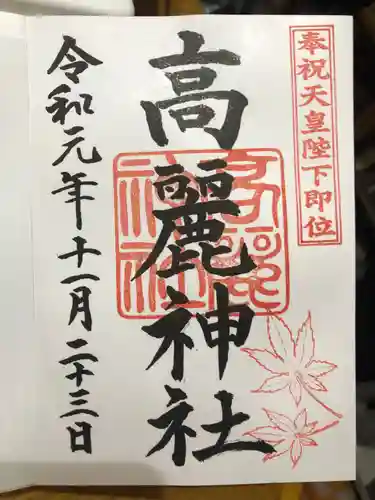 奉祝天皇陛下即位
高麗神社
令和元年十一月二十三日